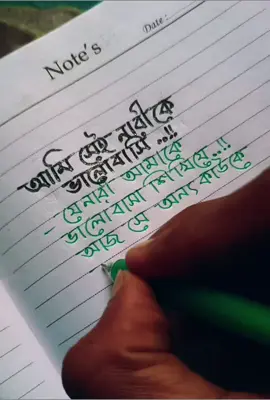 Note's
Date:
আমি সেই নারীকে
ভালোবাসি ..!!
- যে নারী আমাকে
ভালোবাসা শিখিয়ে..!!
আজ সে অন্য কাউকে